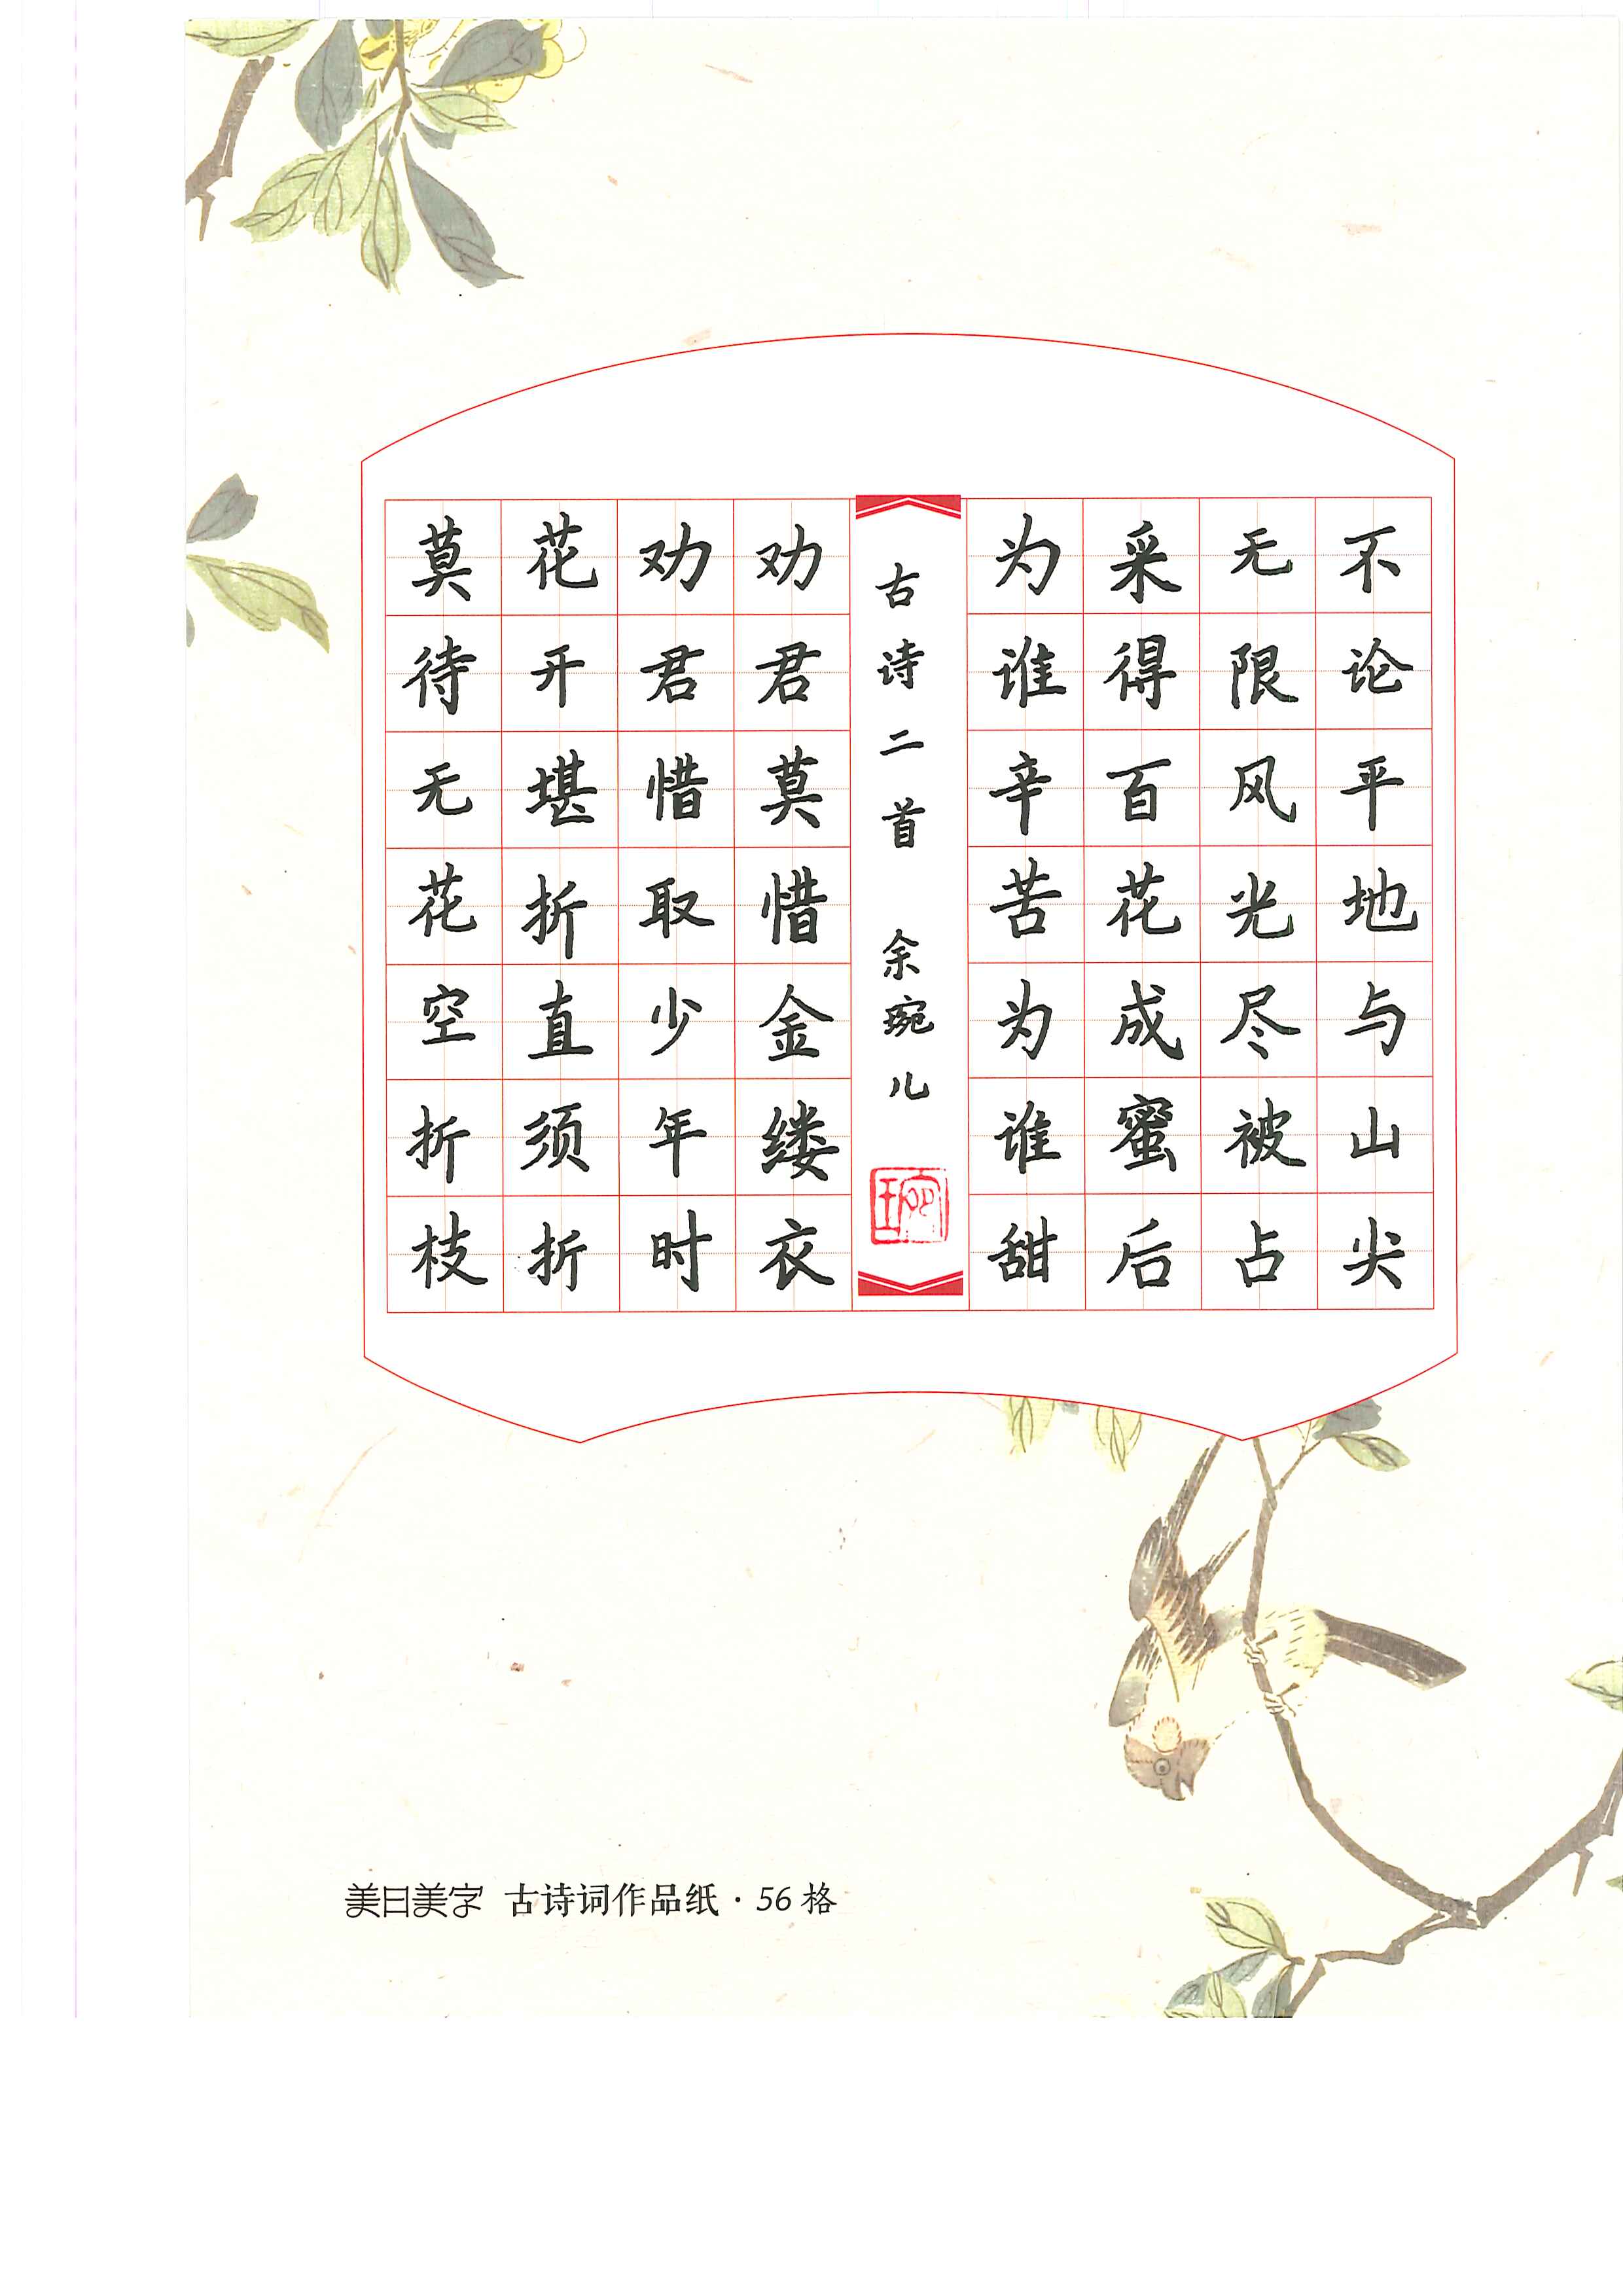 不论平地与山尖
无限风光尽被占
采得百花成蜜后
为谁辛苦为谁甜
古诗二首 余琬儿
琬
劝君莫惜金缕衣
劝君惜取少年时
花开堪折直须折
莫待无花空折枝
美日美字 古诗词作品纸·56格